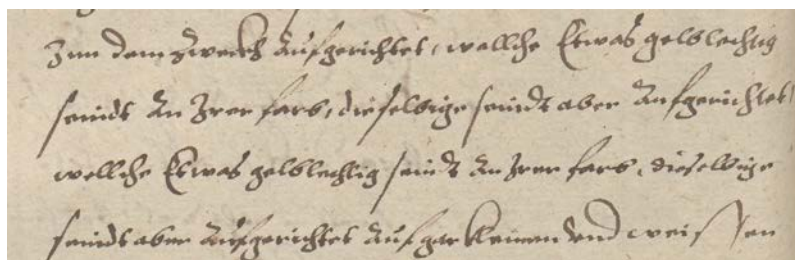 Zum dem Zweckh Aufgerichtet, wellche Etwas gelblechtig
seindt An Irer farb, dieselbige seindt aber Aufgerichtet,
wellche Etwas gelblechtig seindt An Irer farb, dieselbige
seindt aber Aufgerichtet Auf gar kleinen und weissen